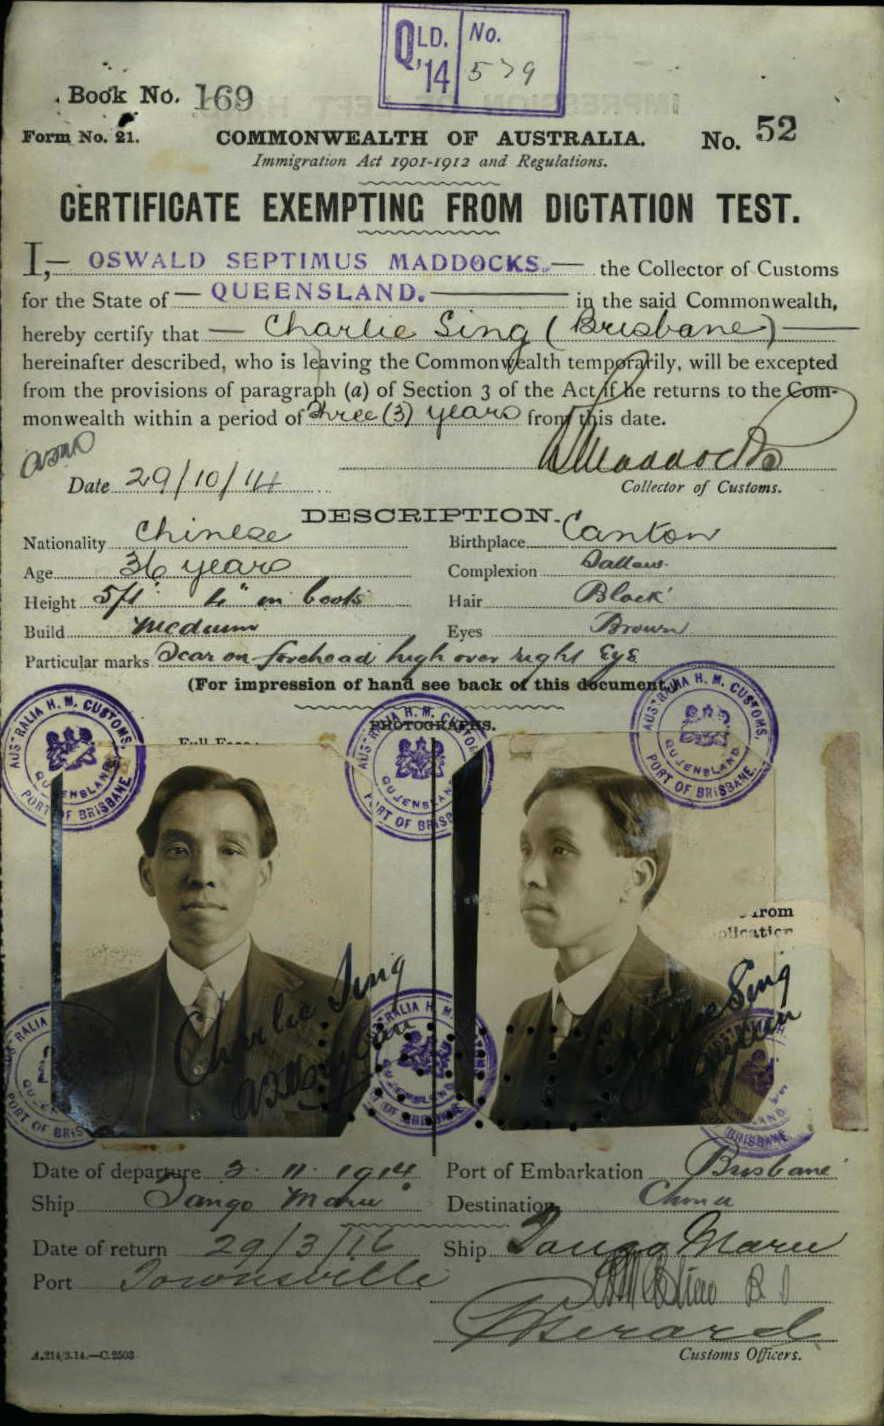 QLD. No.
'14 579
Book No. 169
Form No. 21. COMMONWEALTH OF AUSTRALIA. No. 52
Immigration Act 1901-1912 and Regulations.
CERTIFICATE EXEMPTING FROM DICTATION TEST.
I,— OSWALD SEPTIMUS MADDOCKS.— the Collector of Customs
for the State of — QUEENSLAND. — in the said Commonwealth,
hereby certify that — Charlie Sing (Brisbane) —
hereinafter described, who is leaving the Commonwealth temporarily, will be excepted
from the provisions of paragraph (a) of Section 3 of the Act if he returns to the Com-
monwealth within a period of three (3) years from this date.
Maddocks
Date 29/10/14 Collector of Customs.
DESCRIPTION.
Nationality Chinese Birthplace Canton
Age 36 years Complexion Sallow
Height 5ft 4" in boots Hair Black
Build Medium Eyes Brown
Particular marks Scar on forehead high over right Eye
(For impression of hand see back of this document.)
PHOTOGRAPHS.
Full Face
AUSTRALIA H. M. CUSTOMS.
QUEENSLAND
PORT OF BRISBANE
AUSTRALIA H. M. CUSTOMS.
QUEENSLAND
PORT OF BRISBANE
AUSTRALIA H. M. CUSTOMS.
QUEENSLAND
PORT OF BRISBANE
Charlie Sing
Charlie Sing
AUSTRALIA
PORT OF BRIS
AUSTRALIA H. M.
QUEENSLAND
OF BRISBANE
BRISBANE
Date of departure 3. 11. 1914 Port of Embarkation Brisbane
Ship Tango Maru Destination China
Date of return 29/3/16 Ship Tango Maru
Port Townsville
Customs Officers.
A.214/3.14.—C.2503